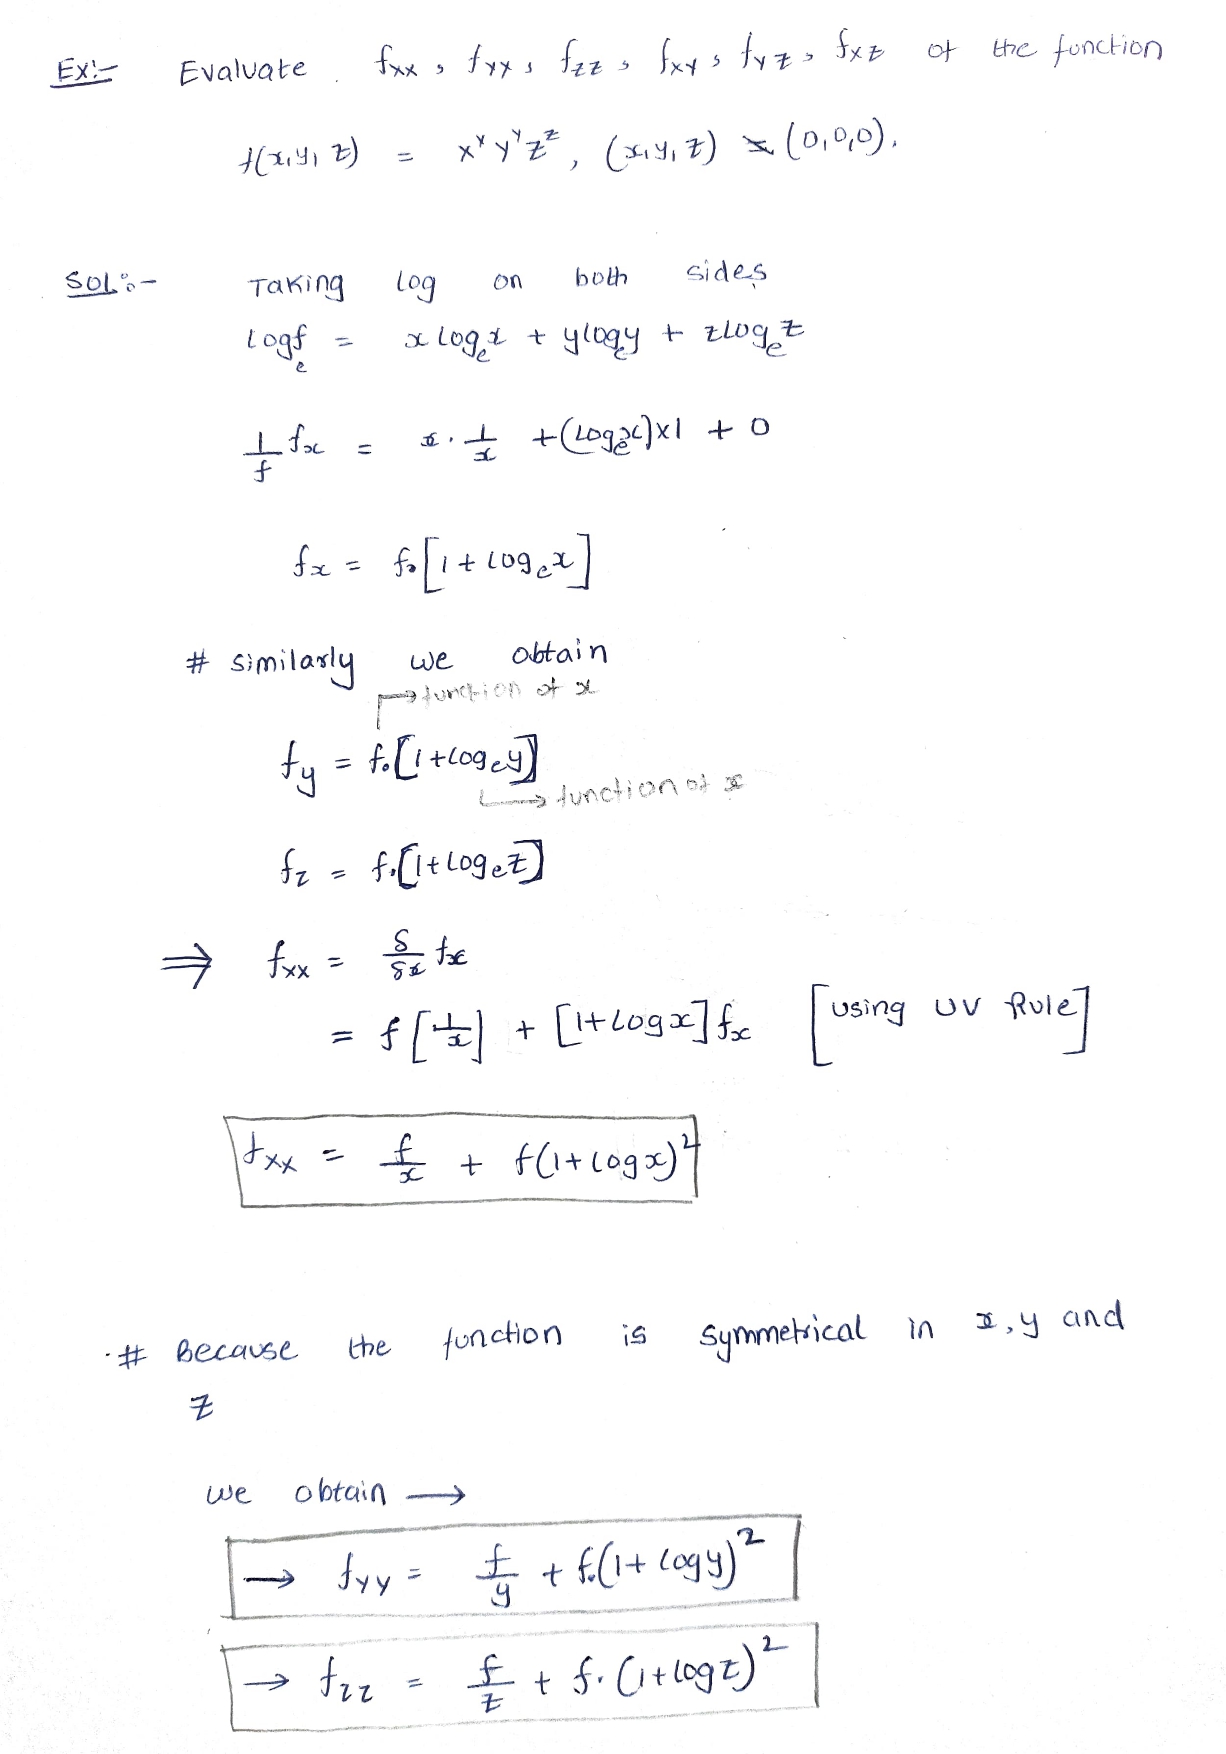 Ex:- Evaluate fxx, fyx, fzz, fxy, fyz, fxz of the function
f(x,y,z) = x^x y^y z^z, (x,y,z) ≠ (0,0,0).
SOL:- Taking log on both sides
log_e f = x log_e x + y log_e y + z log_e z
1/f fx = x · 1/x + (log_e x)x1 + 0
fx = f·[1 + log_e x]
# similarly we obtain
→ function of x
fy = f·[1 + log_e y]
→ function of x
fz = f·[1 + log_e z]
⇒ fxx = δ/δx fx
= f[1/x] + [1 + log x] fx [using UV Rule]
fxx = f/x + f(1 + log x)²
·# Because the function is symmetrical in x, y and
z
we obtain →
→ fyy = f/y + f·(1 + log y)²
→ fzz = f/z + f·(1 + log z)²